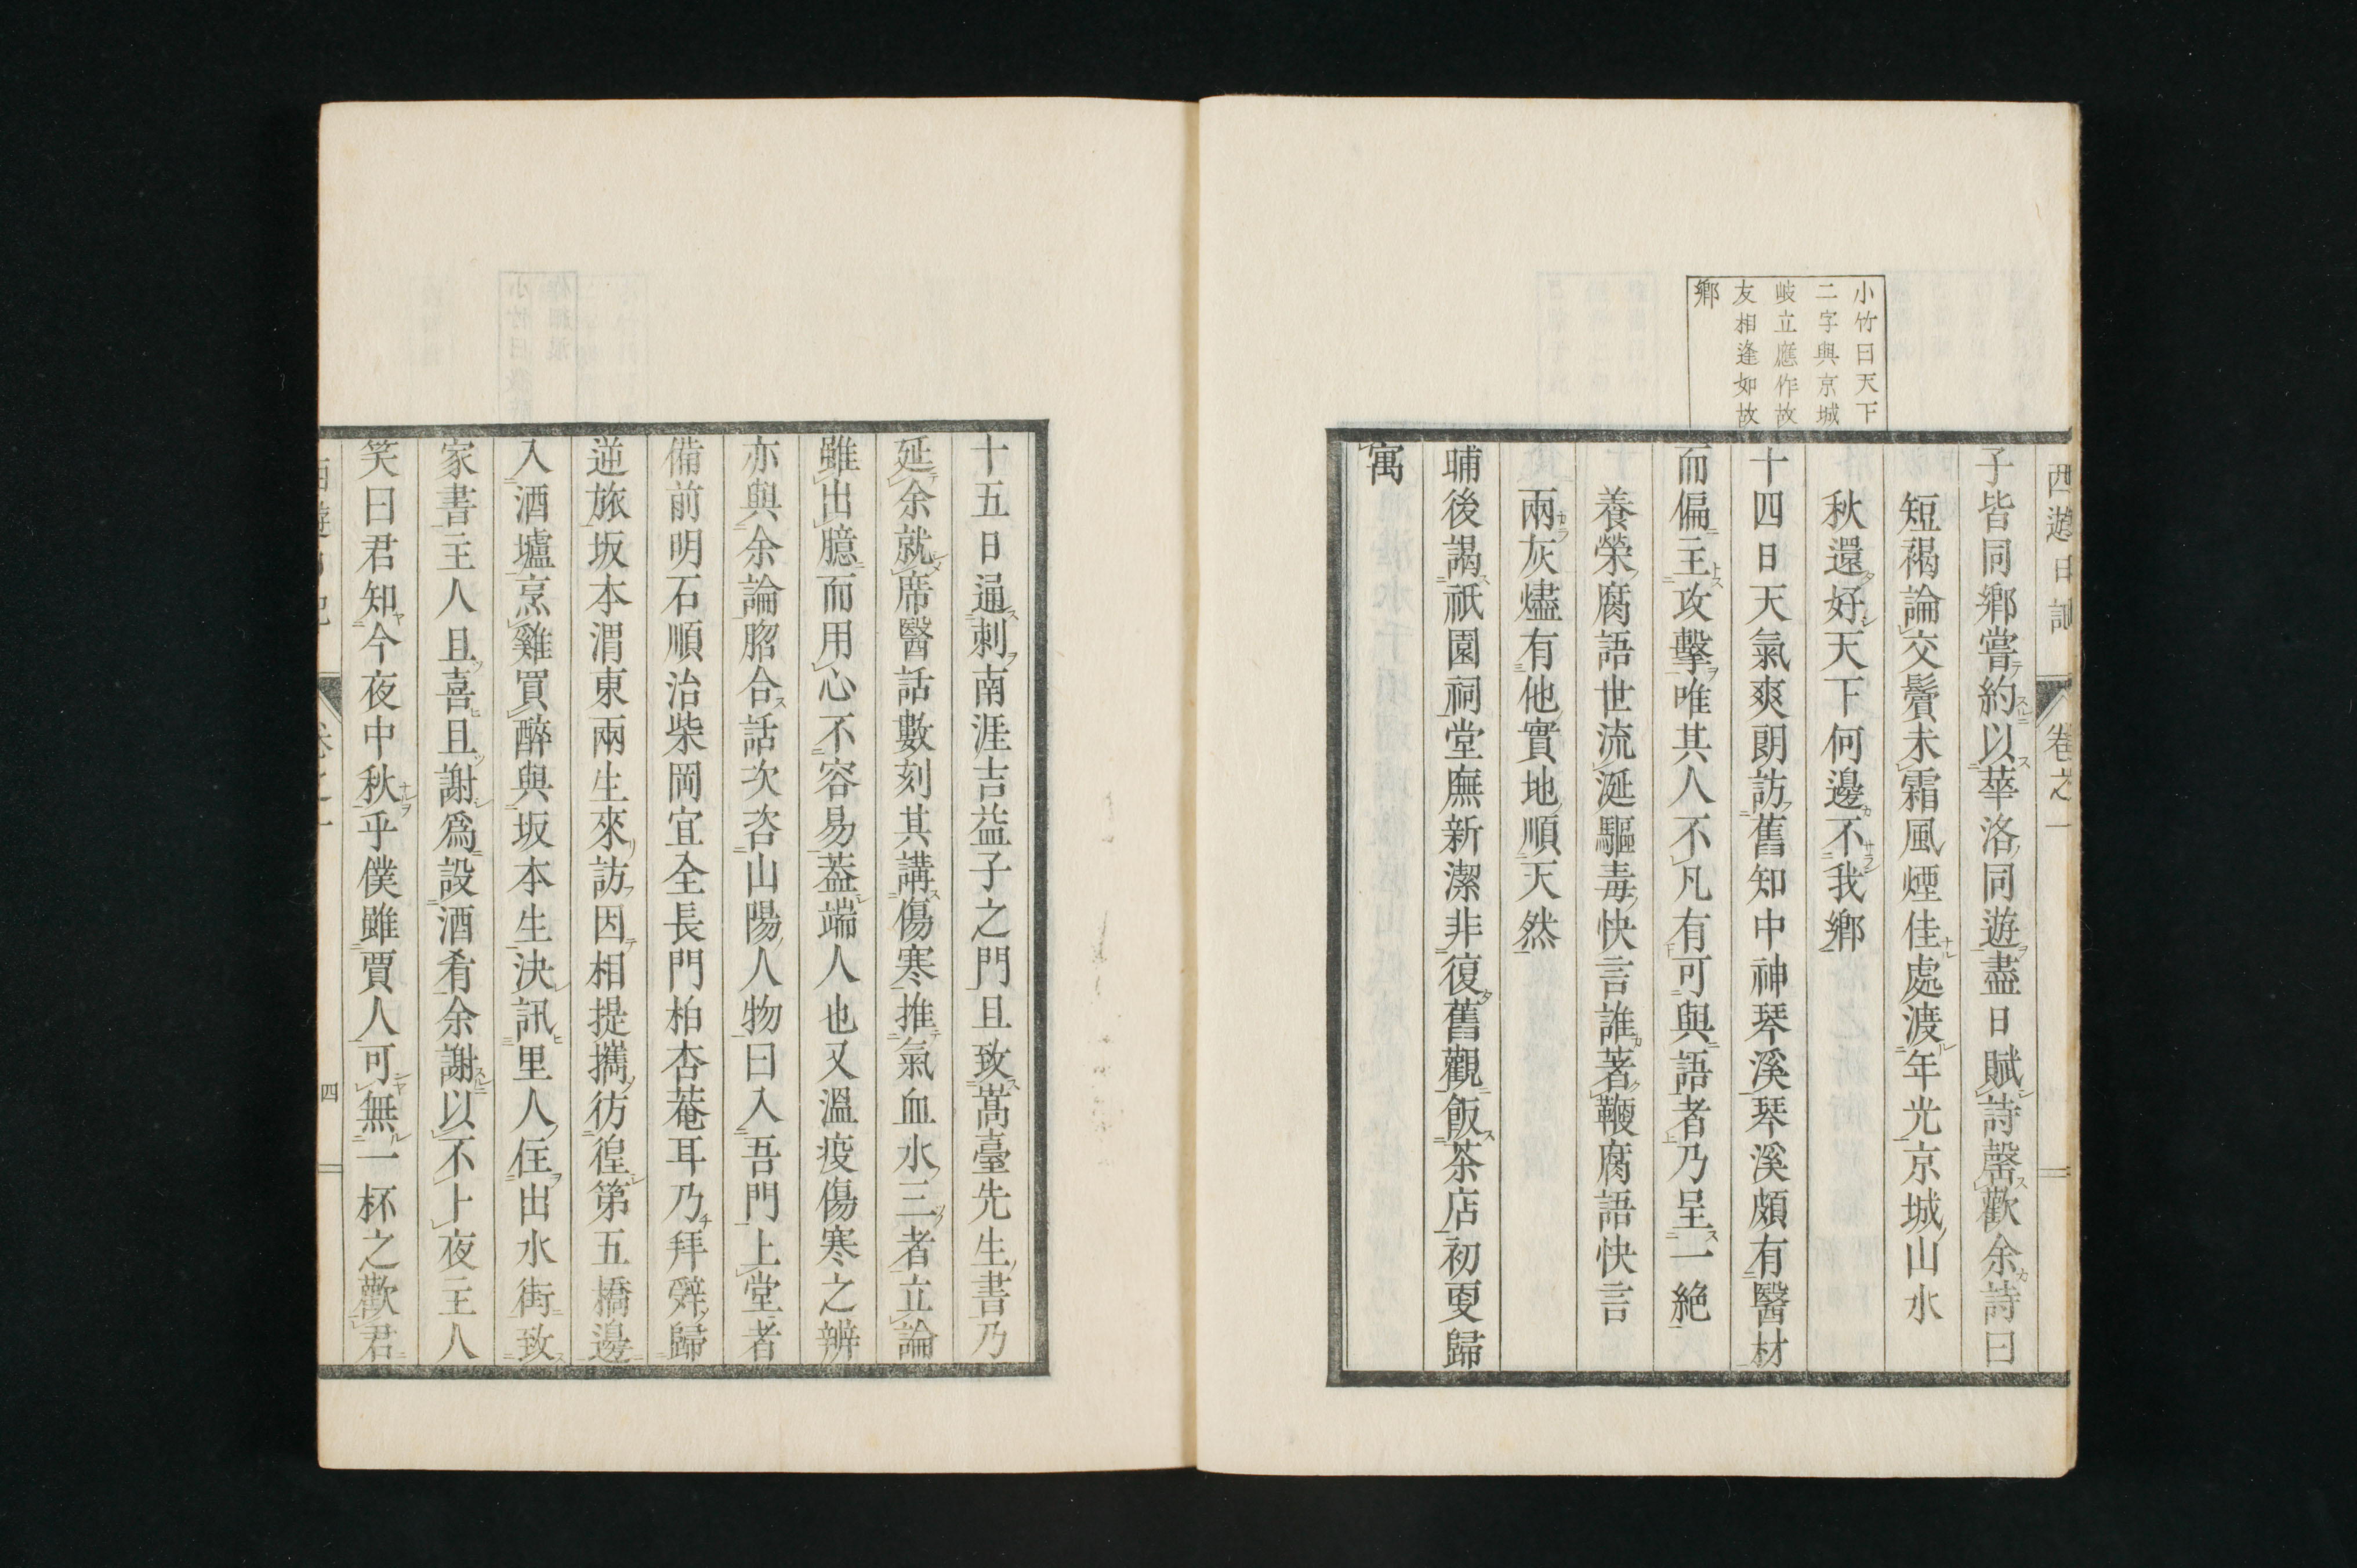 西遊日記　卷之一
小竹曰天下
二字與京城
岐立應作故
友相逢如故
鄉
子皆同鄉嘗約以莘洛同遊盡日賦詩罄歡余詩曰
短褐論交鬢未霜風煙佳處渡年光京城山水
秋還好天下何邊不我鄉
十四日天氣爽朗訪舊知中神琴溪琴溪頗有醫材
而偏主攻擊唯其人不凡有可與語者乃呈一絶
養榮腐語世流涎驅毒快言誰著鞭腐語快言
兩灰燼有他實地順天然
晡後謁祇園祠堂廡新潔非復舊觀飯茶店初更歸
寓
十五日通刺南涯吉益子之門且致蒿臺先生書乃
延余就席醫話數刻其講傷寒推氣血水三者立論
雖出臆而用心不容易蓋端人也又溫疫傷寒之辨
亦與余論脗合話次咨山陽人物曰入吾門上堂者
備前明石順治柴岡宜全長門柏杏菴耳乃拜辭歸
逆旅坂本渭東兩生來訪因相提攜彷徨第五橋邊
入酒壚烹雞買醉與坂本生決訊里人住出水街致
家書主人且喜且謝爲設酒肴余謝以不上夜主人
笑曰君知今夜中秋乎僕雖賈人可無一杯之歡君
四